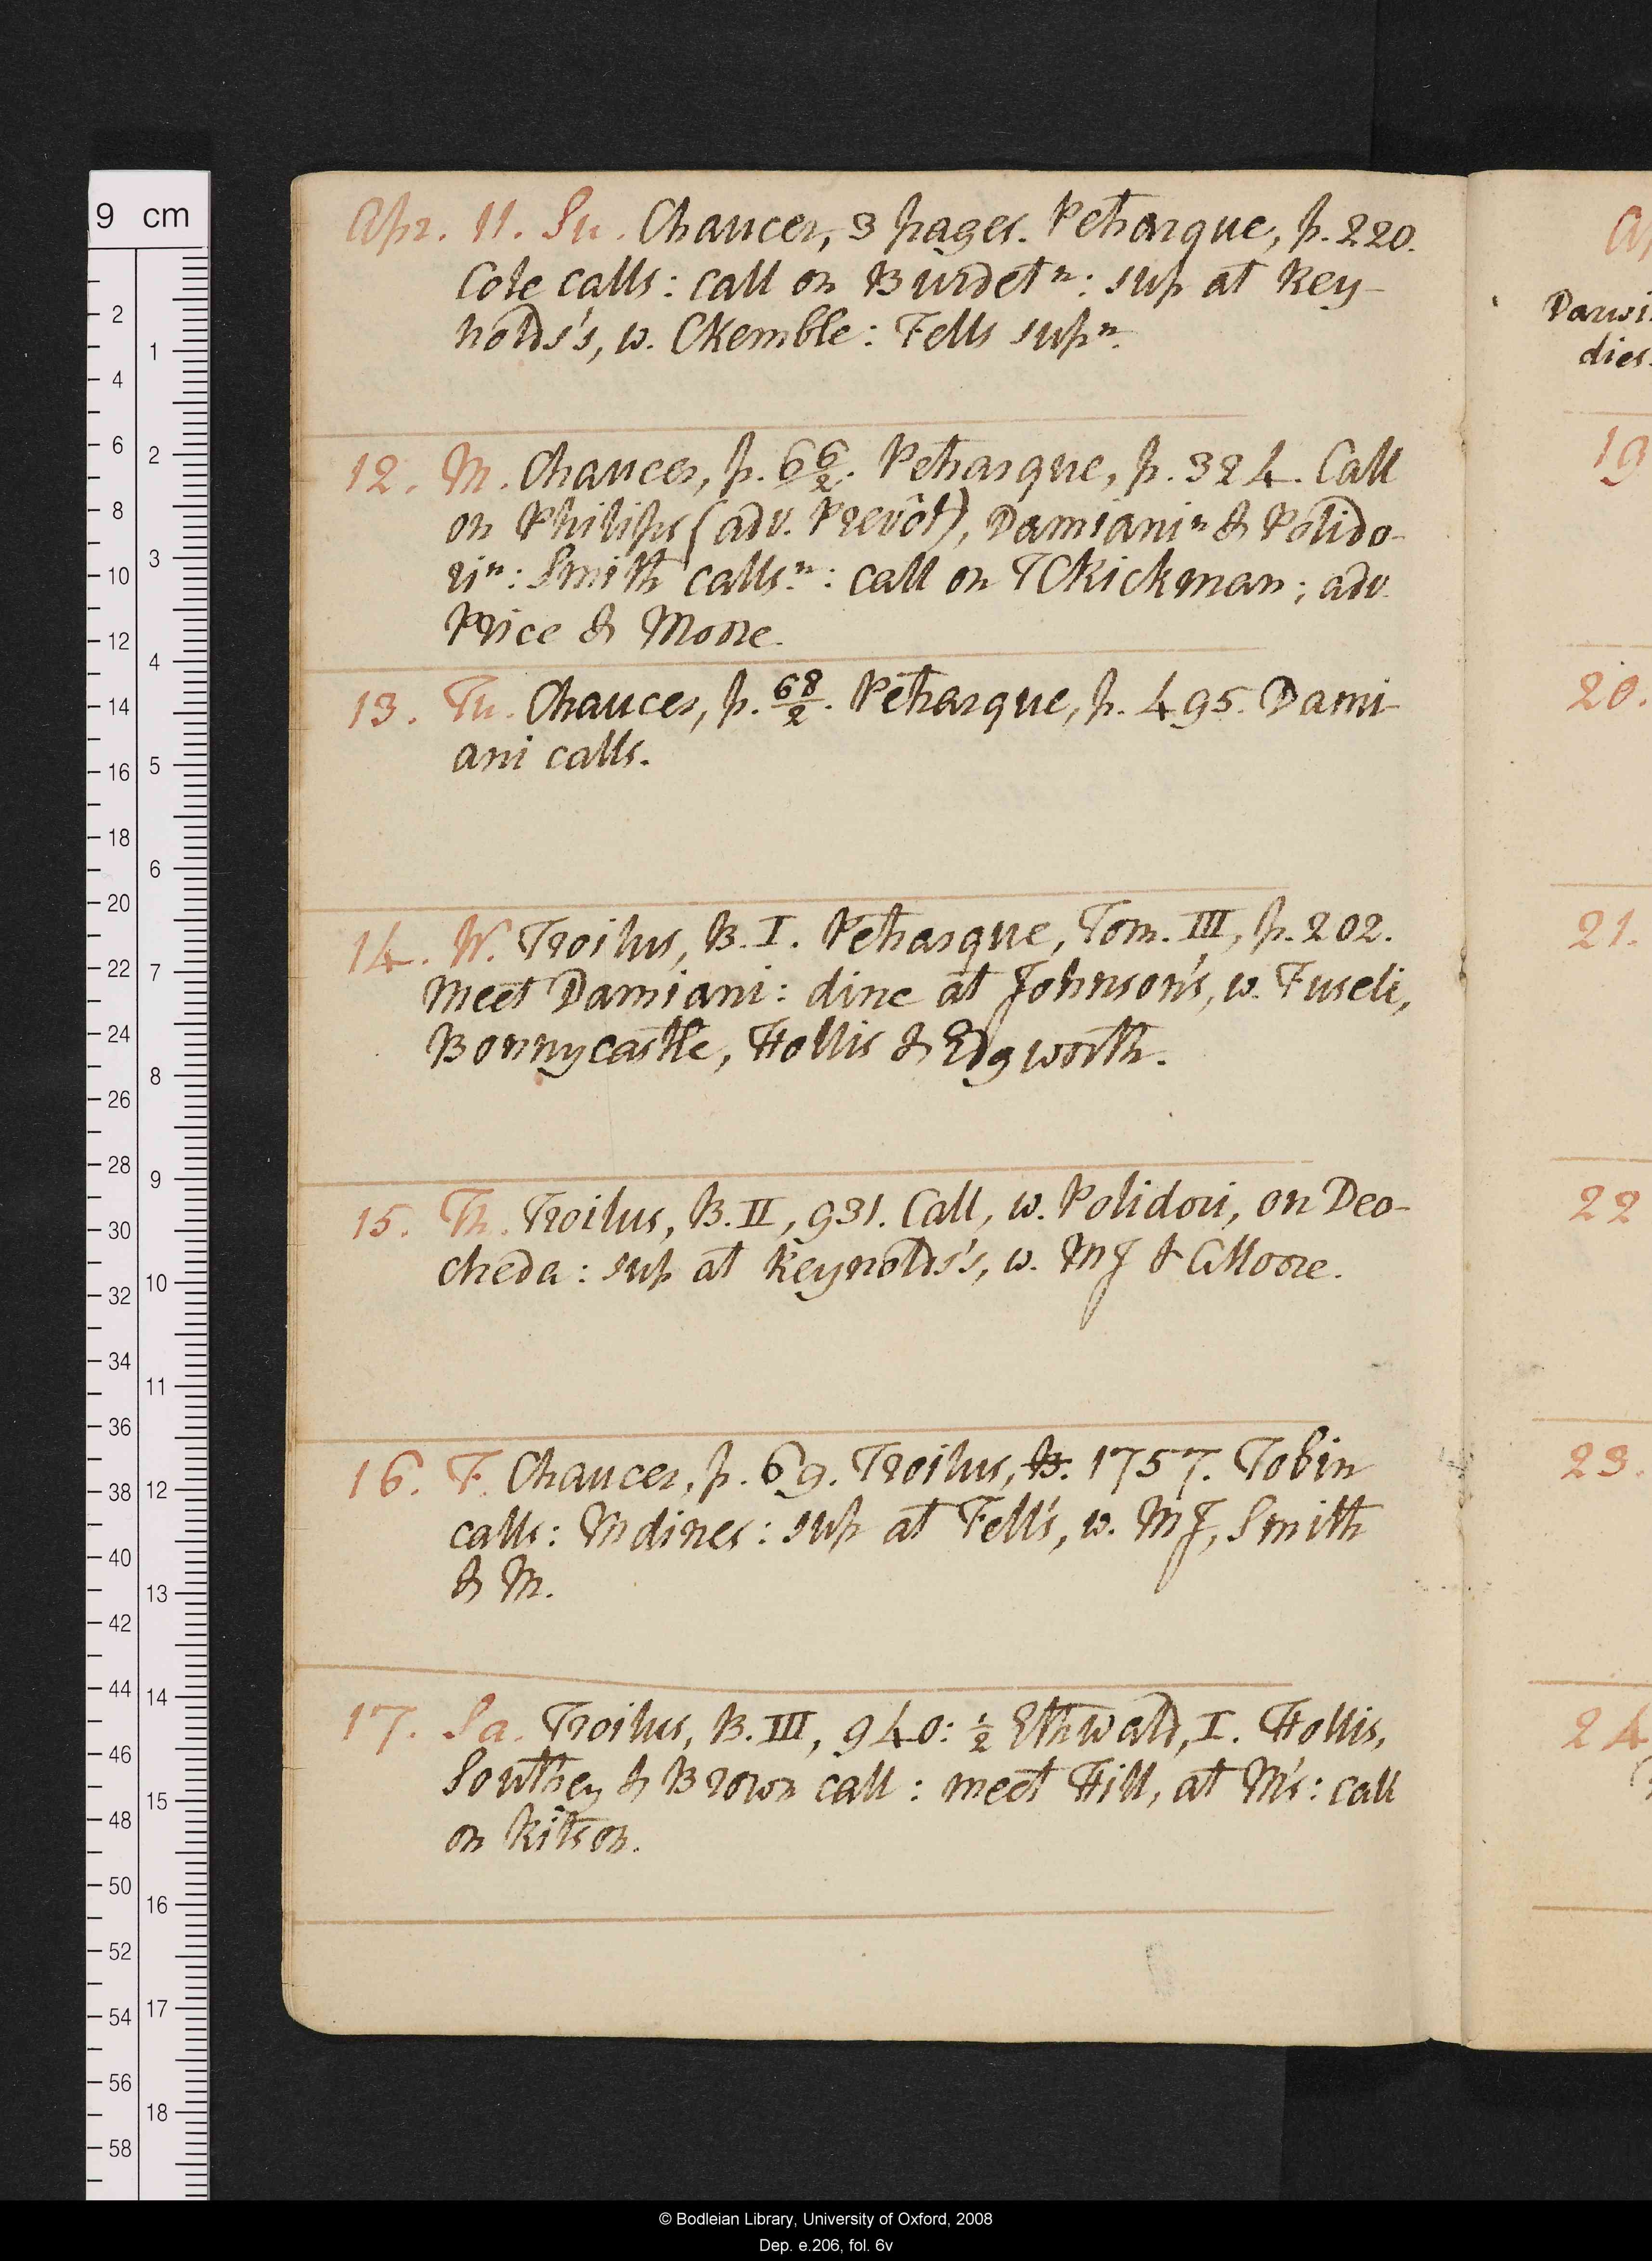 Apr. 11. Su. Chaucer, 3 pages. Petrarque, p. 220.
Cole calls: call on Burdet n: sup at Rey-
nolds's, w. CKemble: Fells sup n.
12. M. Chaucer, p. 66/2. Petrarque, p. 324. Call
on Philips (adv. Prevôt), Damiani n & Polido-
ri n: Smith calls n: call on TCRickman; adv.
Price & Moore.
13. Tu. Chaucer, p. 68/2. Petrarque, p. 495. Dami-
ani calls.
14. W. Troilus, B. I. Petrarque, Tom. III, p. 202.
Meet Damiani: dine at Johnson's, w. Fuseli,
Bonnycastle, Hollis & Edgworth.
15. Th. Troilus, B. II, 931. Call, w. Polidori, on Deo-
cheda: sup at Reynolds's, w. MJ & GMoore.
16. F. Chaucer, p. 69. Troilus, B. 1757. Tobin
calls: M dines: sup at Fell's, w. MJ, Smith
& M.
17. Sa. Troilus, B. III, 940: ½ Ethwald, I. Hollis,
Southey & Brown call: meet Hill, at M's: call
on Ritson.
A
Darwi
dies.
19
20.
21.
22
23.
24
9 cm
© Bodleian Library, University of Oxford, 2008
Dep. e.206, fol. 6v